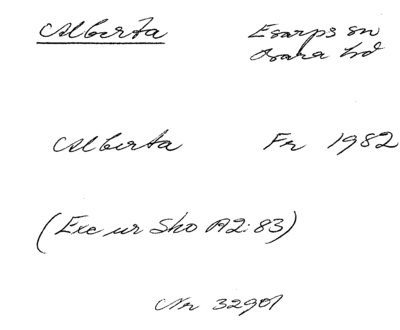 Alberta Esarps sn
Osara hd
Alberta Fr 1982
(Exc ur Sko A2:83)
Nr 32901